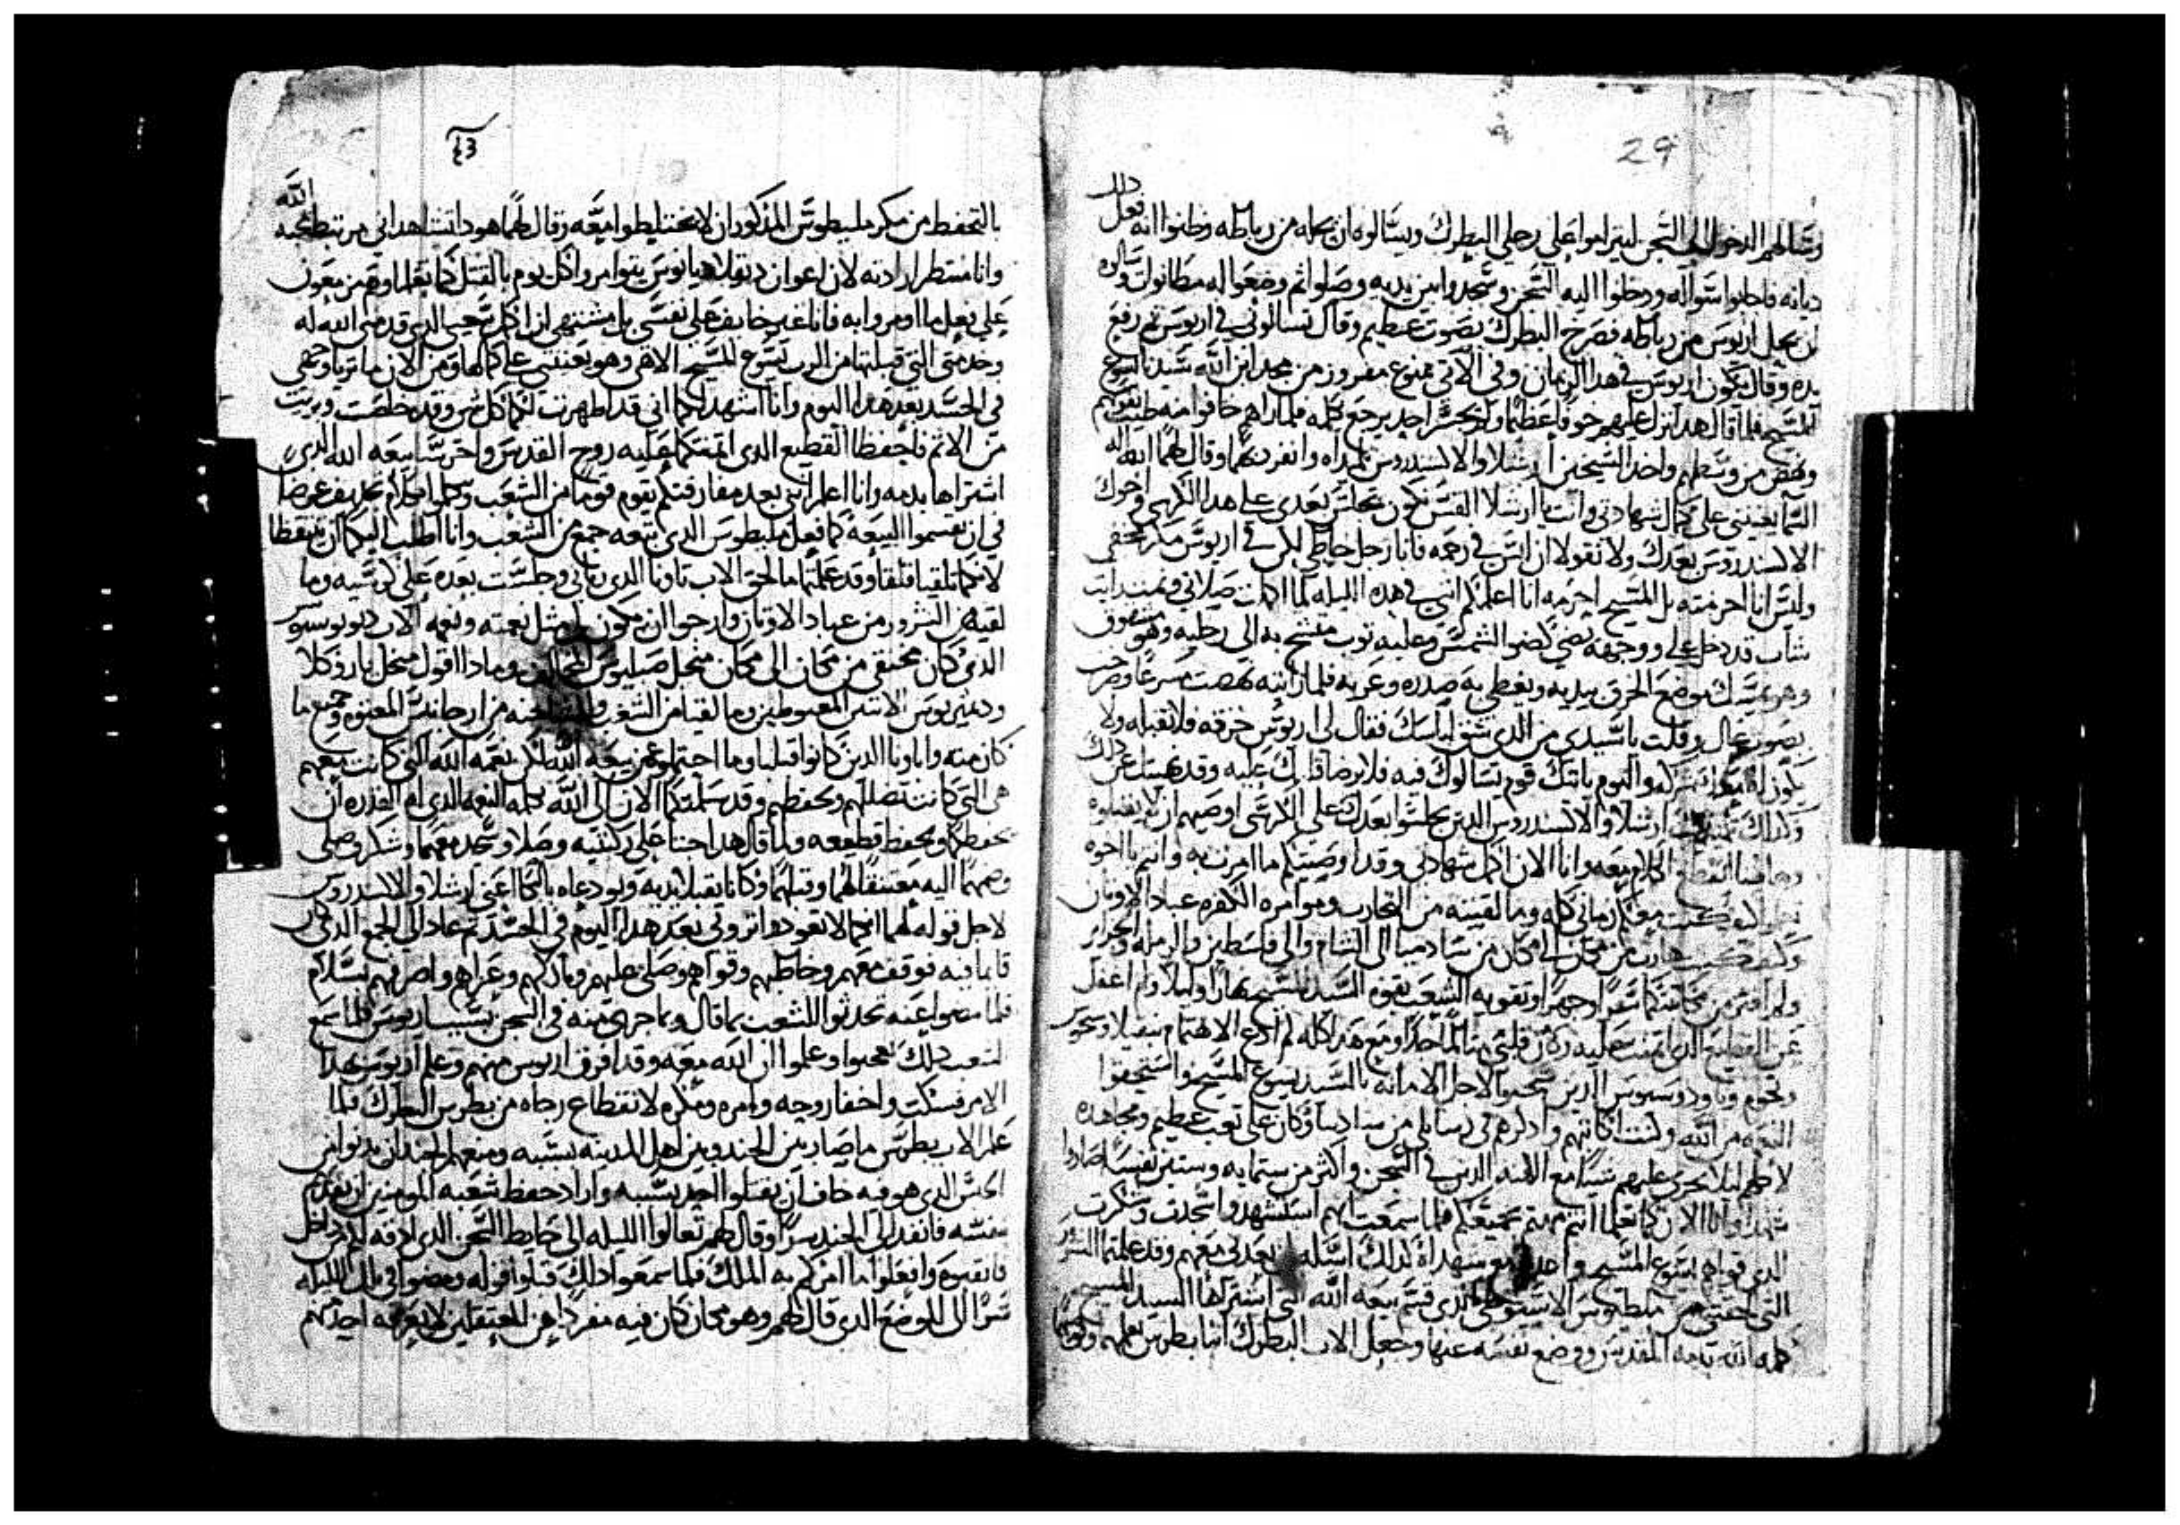 29
وسالهم الدخول الى السجن ليتراموا على رجلي البطرك ويسالوه ان يحله من رباطه وظنوا انه فعل ذلك
ديانه فاجابوا سواله ودخلوا اليه السجن وسجدوا بين يديه وصلوا ثم وضعوا له مطانوات وسالوه
ان يحل اريوس من رباطه فصرخ البطرك بصوت عظيم وقال تسالوني في اريوس ثم رفع
يده وقال يكون اريوس في هذا الزمان وفي الاتي ممنوع مفروز من مجد ابن الله سيدنا يسوع
المسيح فلما قال هذا نزل عليهم خوفا عظيما ولم يجسر احد يرجع كلمه فلما راهم خافوا منه طيب نفوسهم
ونهض من وسطهم واخذ الشيخين ارشلا والاكسندروس تلميذاه وانفرد بهما وقال لهما الله اله
السما يعينني على كمال شهادتي وانت يا ارشلا القس تكون تجلس بعدي على هذا الكرسي واخوك
الاكسندروس بعدك ولا تقولا ان ليس في رحمه فانا رجل خاطي لكن في اريوس مكر مخفى
وليس انا احرمته بل المسيح احرمه انا اعلمكم انني في هذه الليله لما اكملت صلاتي ونمت رايت
شاب قد دخل علي ووجهه يضي كضو الشمس وعليه ثوب متشح به الى رجليه وهو مشقوق
وهو يمسك موضع الخرق بيديه ويغطي به صدره وعريه فلما رايته نهضت مسرعا وصرخت
بصوت عال وقلت يا سيدي من الذي شق لباسك فقال لي اريوس خرقه فلا تقبله ولا
يكون له معك شركه واليوم ياتيك قوم يسالوك فيه فلا يرضا قلبك عليه وقد نهيتك عن ذلك
وكذلك تلميذيك ارشلا والاكسندروس الذين يجلسوا بعدك على الكرسي اوصيهم ان لا يقبلوه
معه وانا الان اكمل شهادتي وقد اوصيتكم ما امرت به وانتم يا اخوه
كيف كنت معكم زماني كله وما لقيته من التجارب وموامره الكفره عباد الاوثان
وكيف كنت هارب من مكان الى مكان من ساد ميا الى الشام والى فلسطين والرمله والجزاير
ولم افتر من مكاتبتكما سرا وجهرا وتقويه الشعب بقوه السيد المسيح نهارا وليلا ولم اغفل
عن القطيع الذي اتمنت عليه وكان قلبي متالما جدا ومع هذا كله لم ادع الاهتمام بفيلاوس
وتاودوسيوس الذين سجنوا لاجل الامانه بالسيد يسوع المسيح واستحقوا
النعمه من الله وكنت اكاتبهم واذكرهم في رسايلي من ساد ميا وكان على تعب عظيم ومجاهده
لاجلهم ليلا يجرى عليهم شيا مع الكهنه الذين في السجن واكثر من ستمايه وستين نفسا صاروا
شهدا وانا الان كما تعلما انتم مهتم بجميعكم فلما سمعت انهم استشهدوا سجدت وشكرت
الذي قواهم يسوع المسيح واحد مع شهداه كذلك اساله ان يعدني معهم وقد علمتما الشرور
التي لحقتني من مليطوس الاسيوطي الذي قسم بيعه الله التي اشتراها السيد المسيح
كلمه الله بدمه المقدس ووضع نفسه عنها وجعل الاب البطرك انبا بطرس يعلمهم ويوصيهما
43
بالتحفظ من مكر مليطوس المذكور ان لا يختلطوا معه وقال لهما هوذا تشاهداني مرتبط بمحبه الله
وانا منتظر ارادته لان اعوان دقلاديانوس يتوامروا كل يوم بالقتل كما تعلما وهم مزمعون
على فعل ما اومروا به فانا غير خايف على نفسي بل مشتهي ان اكمل سعيي الذي قدمني الله له
وخدمتي التي قبلتها من الرب يسوع المسيح الاهي وهو يعينني على كمالها ومن الان ما تريا وجهي
في الجسد بعد هذا اليوم وانا اشهد لكما اني قد اظهرت لكما كل شي وقد حفظت وبريت
من الاثم فاحفظا القطيع الذي اتمنكما عليه روح القدس واحرسا بيعه الله الذي
اشتراها بدمه وانا اعلم انني بعد مفارقتكم يقوم قوما من الشعب ويتكلموا كلام تجديف غرضا
في ان يقسموا البيعه كما فعل مليطوس الذي تبعه جمع من الشعب وانا اطلب اليكما ان تتيقظا
لانكما تلقيا قلقا وقد علمتما ما لحق الاب تاونا الذي رباني وجلست بعده على كرسيه وما
لقيه من الشرور من عباد الاوثان وارجوا ان يكون لي مثل نعمته ونعمه الاب ديونوسيوس
الذي كان مختفي من مكان الى مكان من اجل صبليوس المخالف وماذا اقول من اجل ياروكلا
وديمتريوس الاثنين المغبوطين وما لقيا من الشعب من اوريجانس المعتوه وجميع ما
كان منه وابهاتنا الذين كانوا قبلنا وما احتملوه عن بيعه الله لكن نعمه الله التي كانت معهم
هي التي كانت تصلهم وتحفظهم وقد سلمتكما الان الى الله بكلمه النعمه الذي له القدره ان
يحفظكما ويحفظ قطيعه ولما قال هذا جثا على ركبتيه وصلا وسجد معهما وشكر وصلى
وضمهما اليه معتنقا لهما وقبلهما وكانا يقبلا يديه ويودعاه بالبكا اعني ارشلا والاكسندروس
لاجل قوله لهما انكما لا تعودوا تروني بعد هذا اليوم في الجسد ثم عاد الى الجمع الذي كان
قايما فيه فوقف معهم وخاطبهم وقواهم وصلى عليهم وباركهم وعزاهم واصرفهم بسلام
فلما مضوا عنه تحدثوا للشعب بما قال وما جرى منه في السجن بسبب اريوس فلما سمع
الشعب ذلك تعجبوا وعلموا ان الله معه وقد افرق اريوس منهم وعلم اريوس بهذا
الامر فسكت واخفا روحه وامره ومكره لانقطاع رجاه من بطرس البطرك فلما
علم الاب بطرس ما صار بين الجند وبين اهل المدينه بسببه ومنعهم الجند ان يدنوا من
الحبس الذي هو فيه خاف ان يقتلوا احد بسببه واراد حفظ شعبه المومنين ان يفديهم
بنفسه فانفذ الى الجند سرا وقال لهم تعالوا الليله الى حايط السجن الذي ادقه لكم من داخل
فانقبوه وافعلوا ما امركم به الملك فلما سمعوا ذلك قبلوا قوله ومضوا في تلك الليله
سرا الى الموضع الذي قال لهم وهو مكان كان فيه مفردا عن المعتقلين لا يعرفه احد منهم